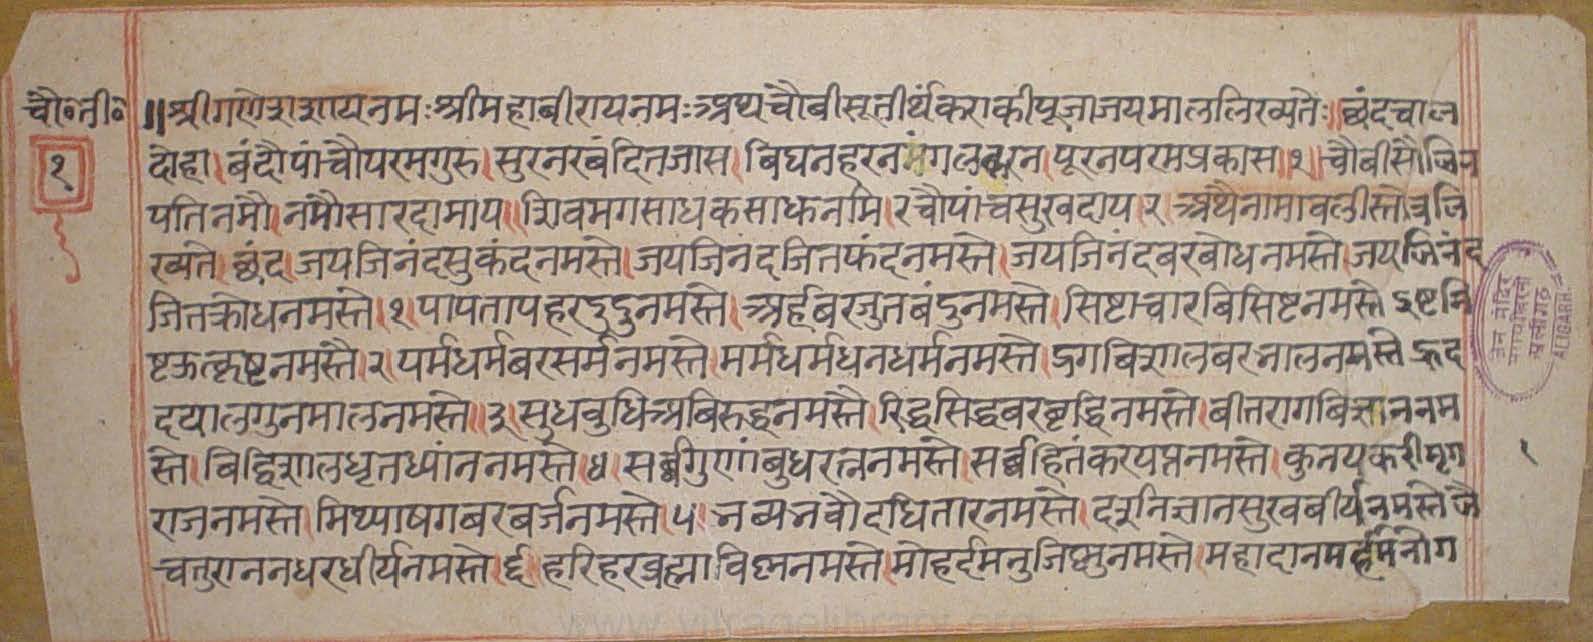 चौ॰ती॰
१
॥श्रीगणेशायनमः श्रीमहाबीरायनमः अथचौबीसतीर्थंकराकीपूजाजयमाललिख्यतेः॥छंदचाल
दोहा।बंदौपांचौपरमगुरु।सुरनरबंदितजास।बिघनहरनमंगलकरन।पूरनपरमप्रकास॥१॥चौबीसौजिन
पतिनमौ।नमौसारदामाय॥शिवमगसाधकसाधनमि।रचौपांचसुखदाय।२।अथैनामावलीस्तोत्रलि
ख्यते।छंद।जयजिनंदसुकंदनमस्ते।जयजिनंदजितफंदनमस्ते।जयजिनंदबरबोधनमस्ते।जयजिनंद
जितक्रोधनमस्ते।१।पापतापहरइदुनमस्ते।अर्हबरजुतबंदुनमस्ते।सिष्टाचारबिसिष्टनमस्ते इष्टमि
ष्टऊत्कृष्टनमस्तै।२।पर्मधर्मबरसर्मनमस्ते।मर्मधर्मधनधर्मनमस्ते।द्रगबिशालबरभालनमस्ते ह्रद
दयालगुनमालनमस्ते॥३॥सुधबुधिअबिरुद्धनमस्तै।रिद्धिसिद्धबरबृद्धिनमस्ते।बीतरागबिज्ञाननम
स्ते।बिद्विशालधृतध्यांननमस्तै।४।सर्ब्बगुणांबुधरत्ननमस्ते।सर्ब्बहितंकरयत्ननमस्ते।कुनयकरीमृग
राजनमस्ते।मिथ्याषगबरबर्जनमस्ते।५।भब्यभवौदधितारनमस्ते।दर्शनिज्ञानसुखबीर्यनमस्ते जै
चतुराननधरधीर्यनमस्ते।६।हरिहरब्रह्माविश्ननमस्ते।मोहर्दमनुजिश्नुनमस्ते।महादानमर्हमभोग
१
जैन मंदिर
अलीगढ़
ALIGARH.
www.vitragelibrary.org